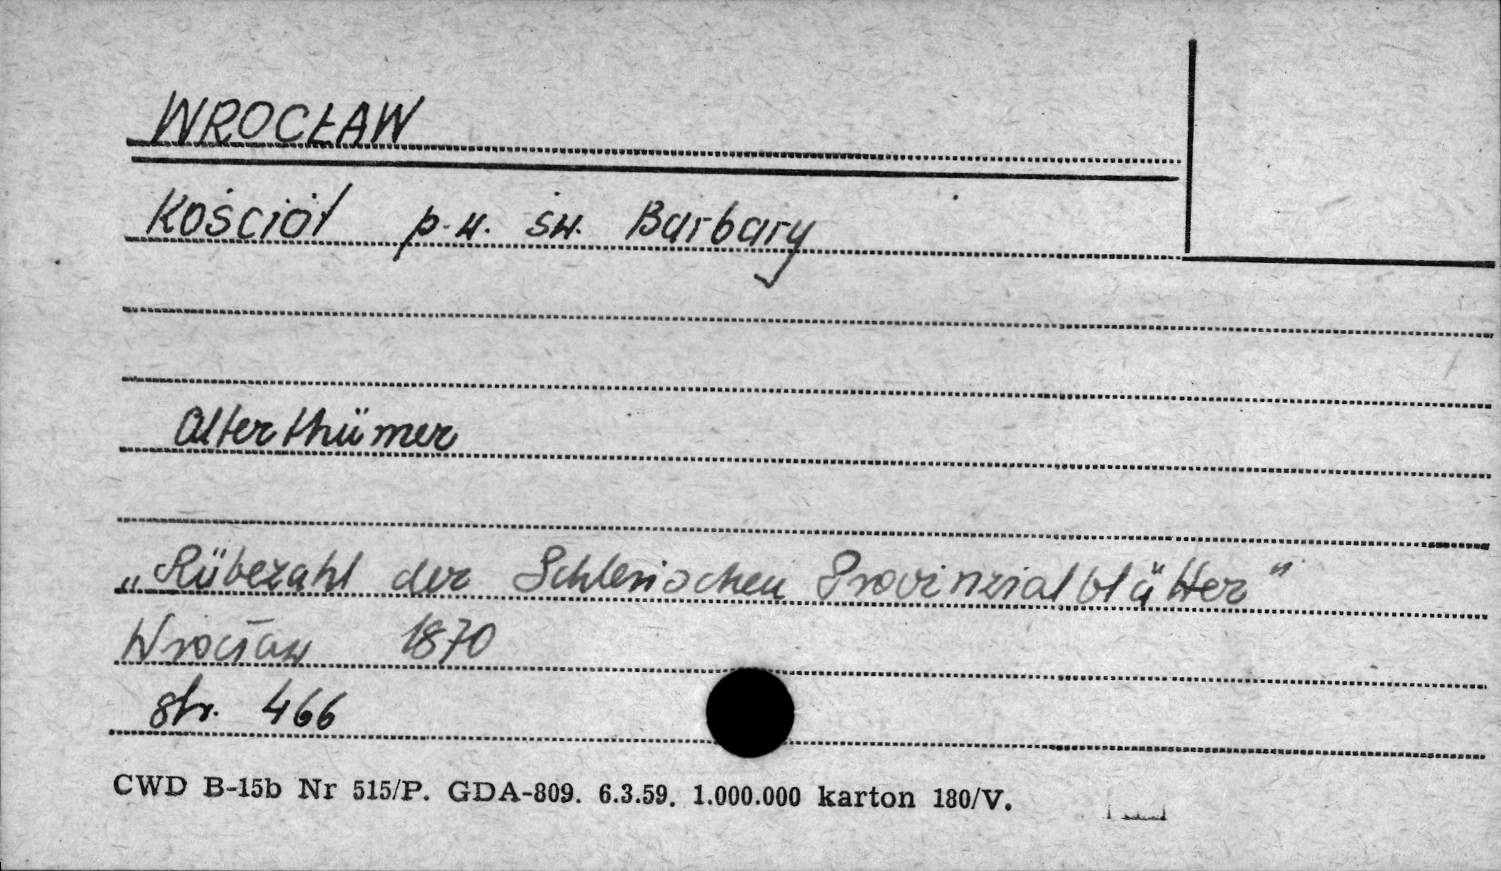 WROCŁAW
Kościół p.w. św. Barbary
Alterthümer
„Rübezahl der Schlesischen Provinzialblätter"
Wrocław 1870
str. 466
CWD B-15b Nr 515/P. GDA-809. 6.3.59. 1.000.000 karton 180/V.